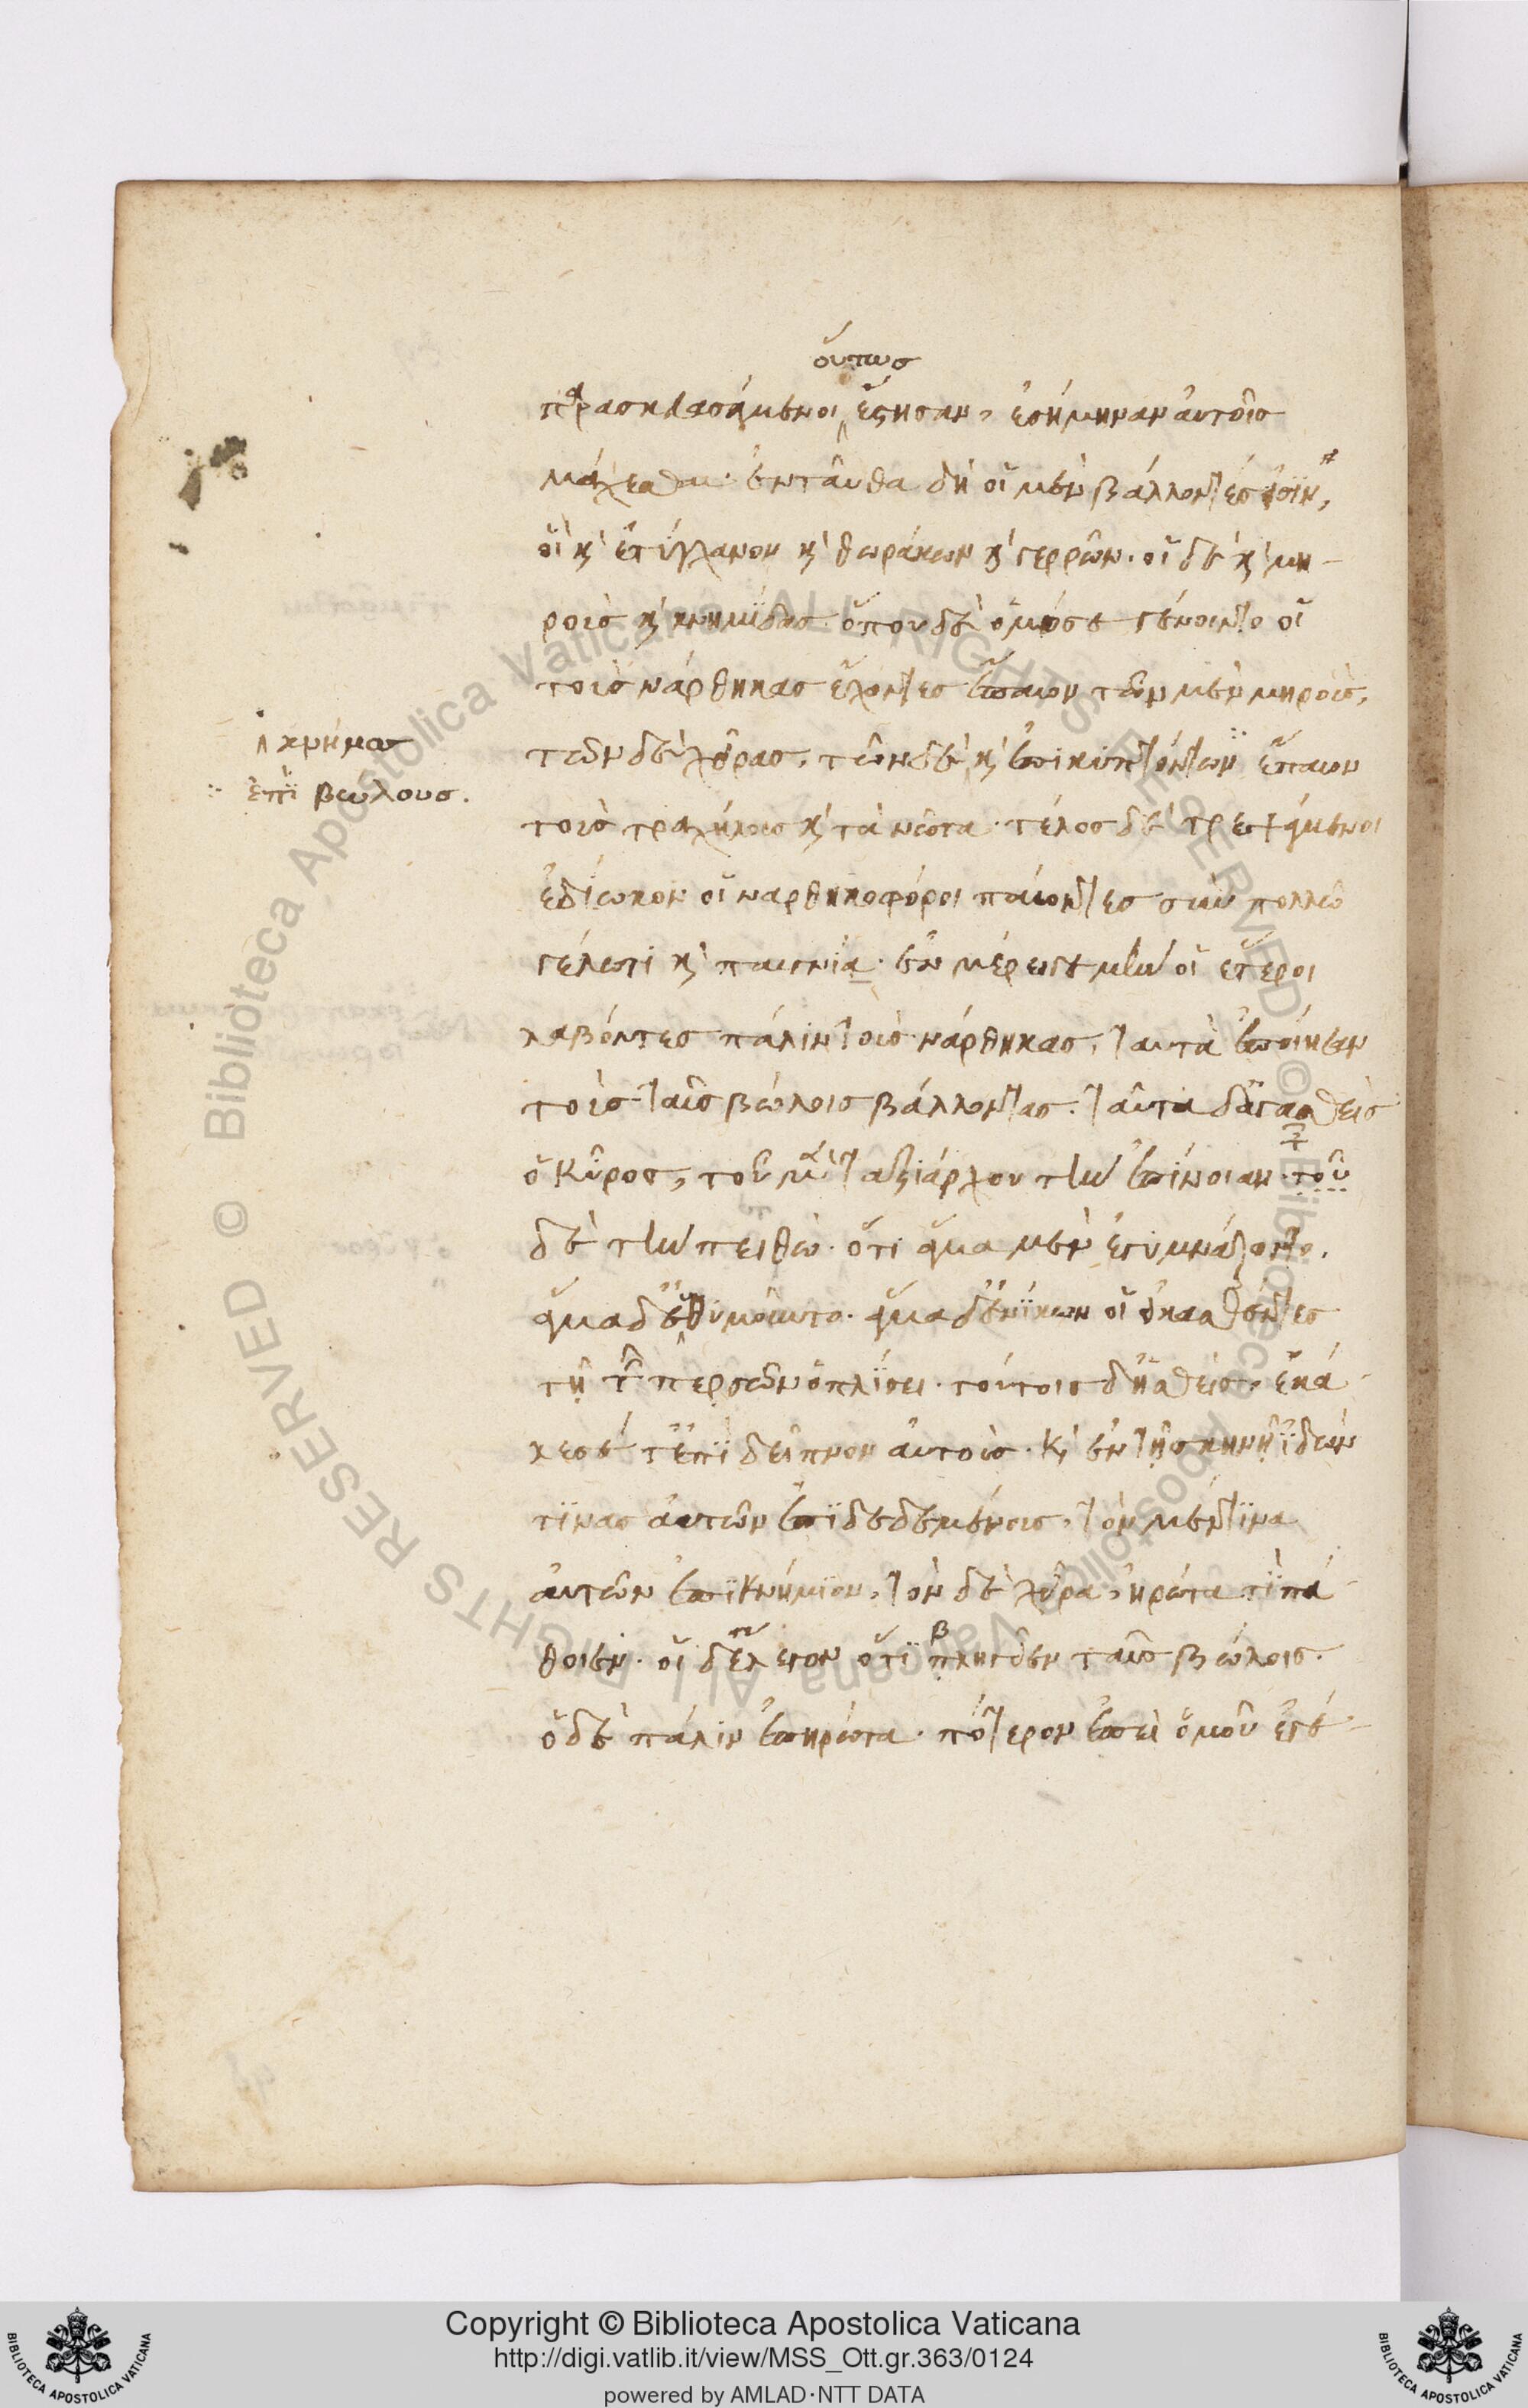 οὕτως
παρασκευασάμενοι ἔστησαν, ἐσήμηναν αὐτοῖς
μάχεσθαι. ἐνταῦθα δὴ οἱ μὲν βάλλοντες
οἳ καὶ ἐτύγχανον καὶ θωράκων καὶ γερρῶν. οἱ δὲ καὶ μη-
ροὺς καὶ κνημίδας. ὅπου δὲ ὁμόσε γένοιντο οἱ
τοὺς νάρθηκας ἔχοντες ἔπαιον τῶν μὲν μηροὺς,
τῶν δὲ χεῖρας, τῶν δὲ καὶ ἐπικυπτόντων ἔπαιον
τοὺς τραχήλους καὶ τὰ νῶτα. τέλος δὲ τρεψάμενοι
ἐδίωκον οἱ ναρθηκοφόροι παίοντες σὺν πολλῷ
γέλωτι καὶ παιγνίᾳ. ἐν μέρει γε μὴν οἱ ἕτεροι
λαβόντες πάλιν τοὺς νάρθηκας, ταυτὰ ἐποίησαν
τοὺς ταῖς βώλοις βάλλοντας. ταῦτα δ' ἀγασθεὶς
ὁ Κῦρος, τοῦ μὲν ταξιάρχου τὴν ἐπίνοιαν. τοῦ
δὲ τὴν πειθώ. ὅτι ἅμα μὲν ἐγυμνάζοντο,
ἅμα δ' εὐθυμοῦντο. ἅμα δ' ἐνίκων οἱ εἰκασθέντες
τῇ τῶν περσῶν ὁπλίσει. τούτοις δ' ἡσθεὶς, ἐκά-
λεσέ τ' ἐπὶ δεῖπνον αὐτοὺς. καὶ ἐν τῇ σκηνῇ ἰδών
τινας αὐτῶν ἐπιδεδεμένους, τὸν μέν τινα
αὐτῶν ἐπικνήμιον, τὸν δὲ χεῖρα, ἠρώτα τί πά-
θοιεν. οἱ δ' ἔλεγον ὅτι πληγεῖεν ταῖς βώλοις.
ὁ δὲ πάλιν ἐπηρώτα. πότερον ἐπεὶ ὁμοῦ ἐγέ-
χρήμα
ἐπὶ βώλους.
Copyright © Biblioteca Apostolica Vaticana
http://digi.vatlib.it/view/MSS_Ott.gr.363/0124
powered by AMLAD·NTT DATA
BIBLIOTECA APOSTOLICA VATICANA
BIBLIOTECA APOSTOLICA VATICANA
© Biblioteca Apostolica Vaticana ALL RIGHTS RESERVED
© Biblioteca Apostolica Vaticana ALL RIGHTS RESERVED